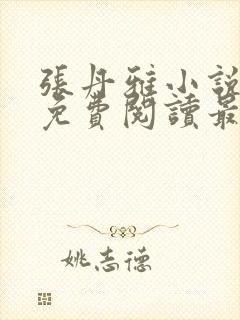 張丹雅小說
免費閱讀最
姚志德